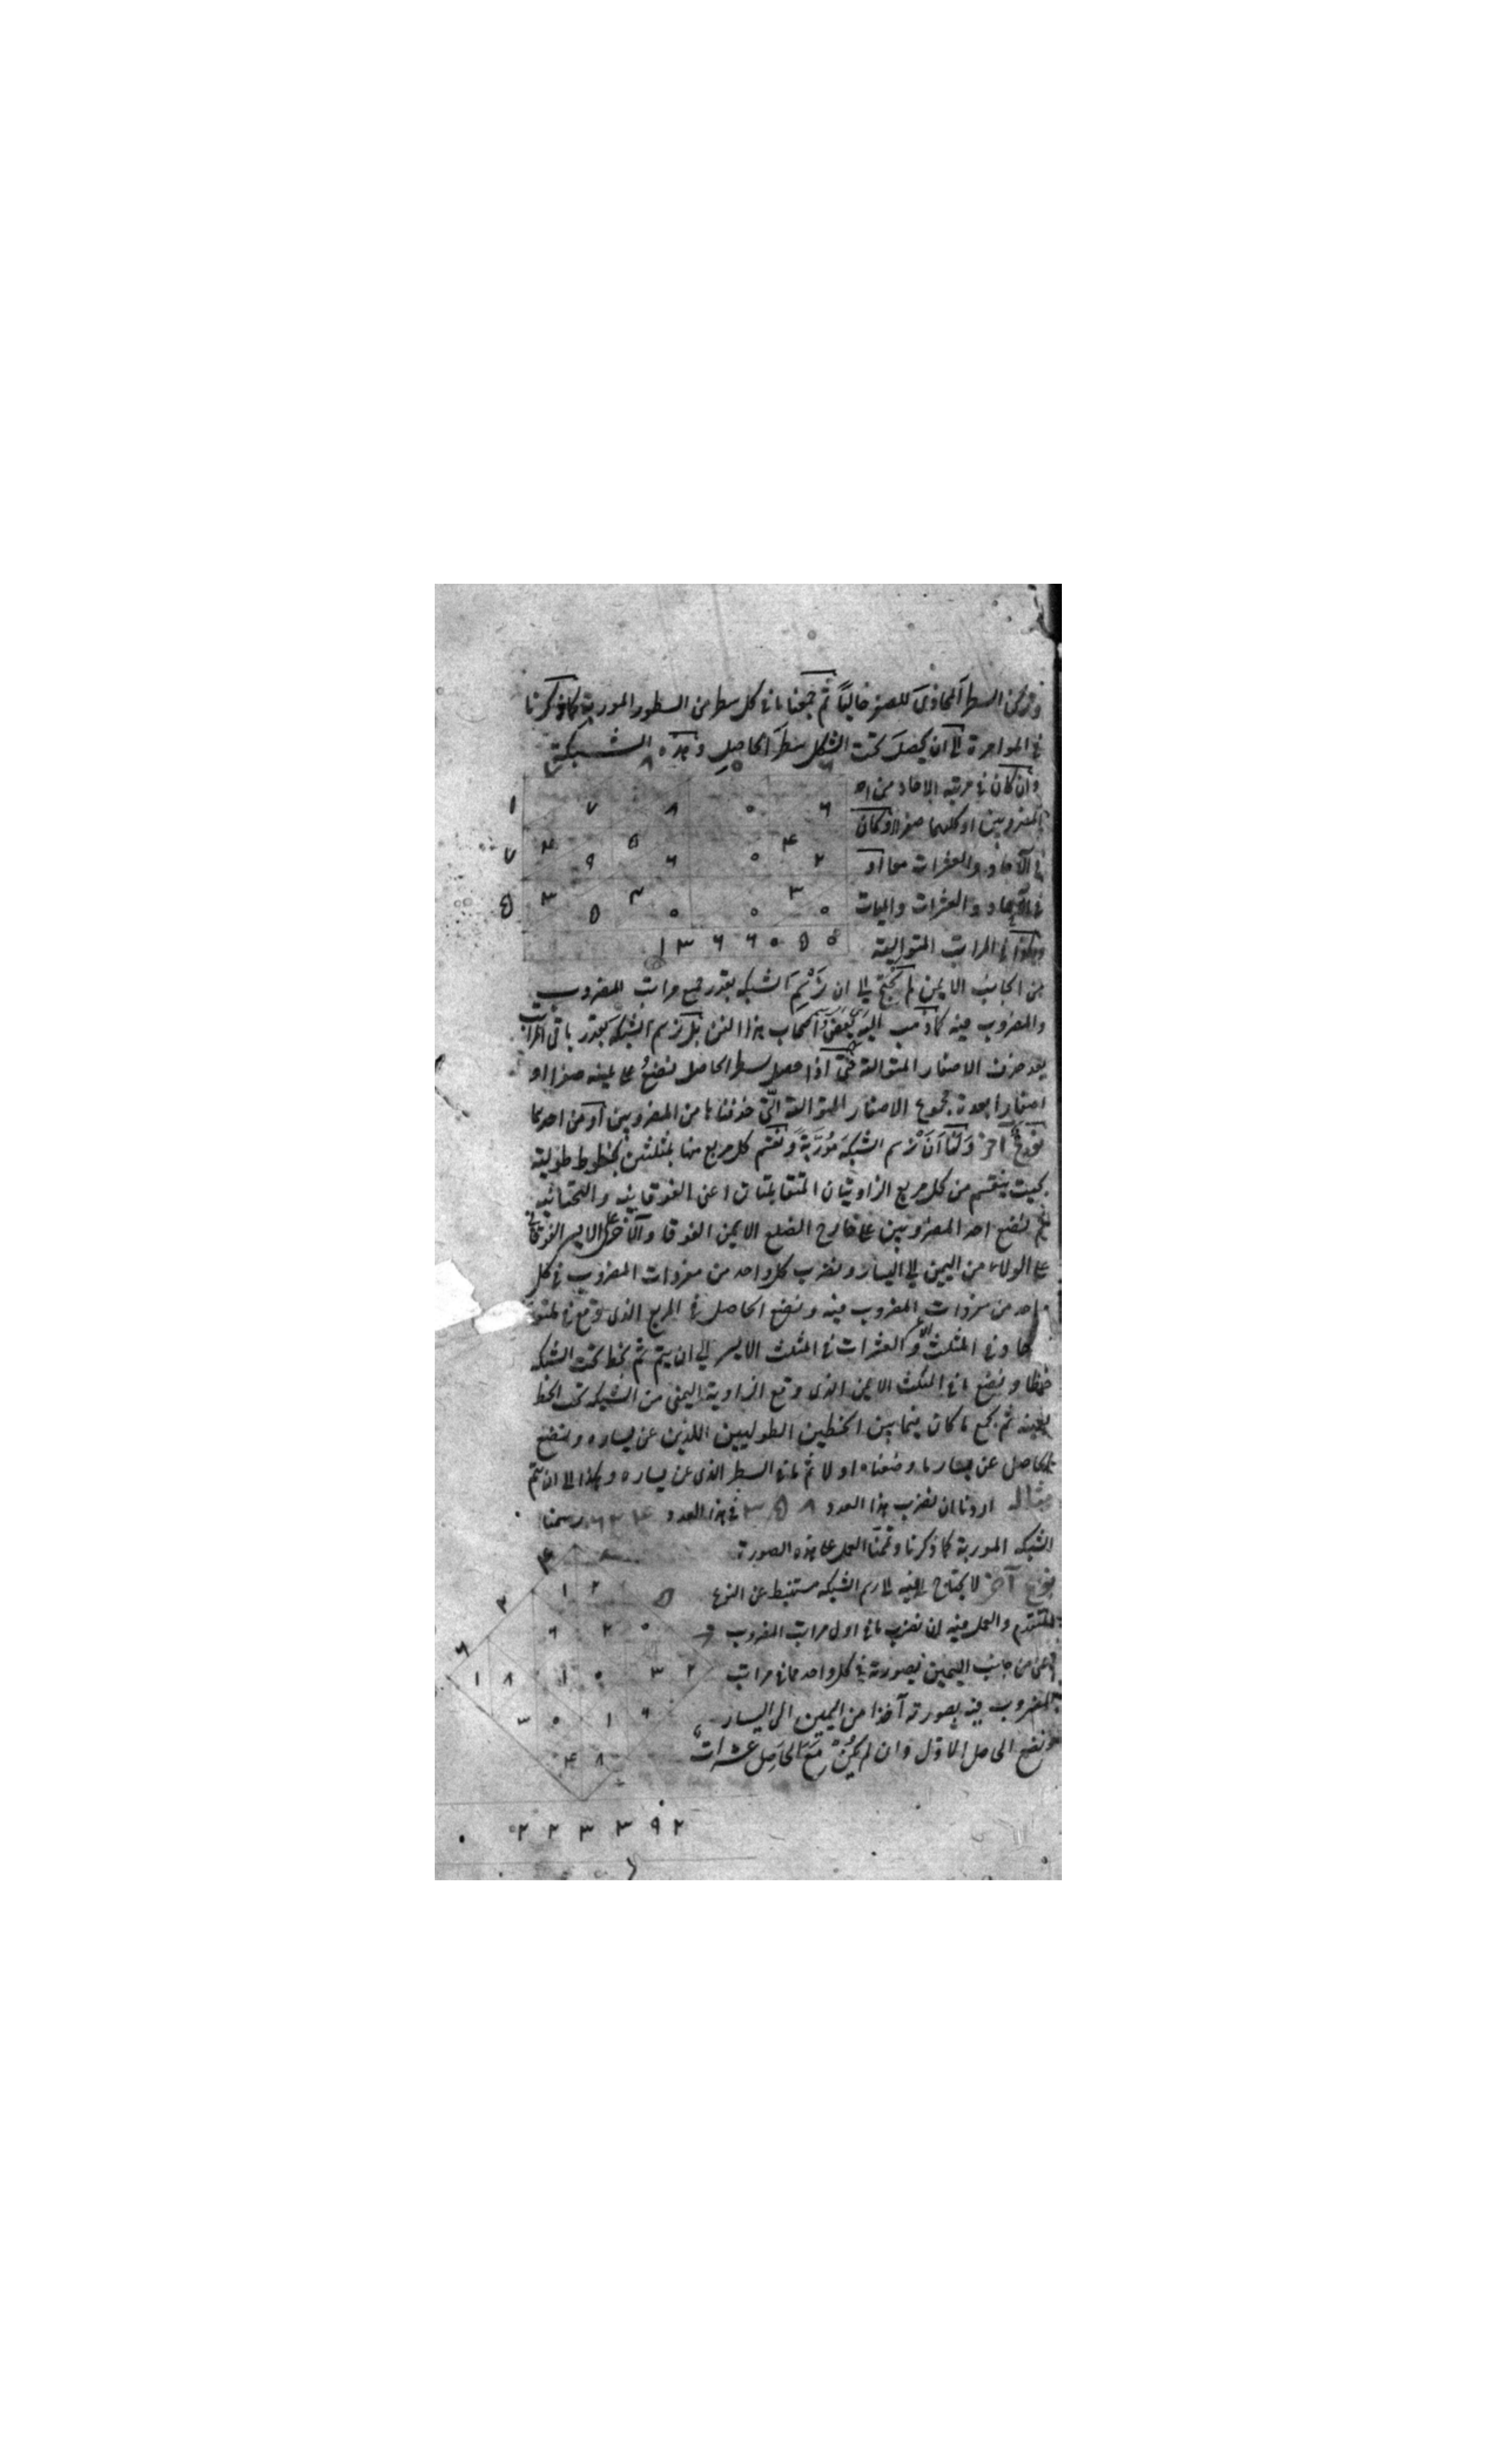 ونترك السطر المحاذى للصفر خالياً ثم جمعنا ما فى كل سطر من السطور المورية كما ذكرنا
فى المؤامرة الى ان يحصل تحت الشكل سطر الحاصل وهذه الشبكة
وان كان فى مرتبة الاحاد من احد
المضروبين او كليهما صفر او كان
فى الآحاد والعشرات معا او
فى الآحاد والعشرات والمئات
وهكذا فى المراتب المتوالية
٨ ٥ ٦
١ ٧ ٨ ٠ ٦
٧ ٤ ٩ ٥ ٦ ٠ ٤ ٢
٥ ٣ ٥ ٣ ٠ ٠ ٣ ٠
١ ٣ ٦ ٦ ٠ ٥ ٥
من الجانب الايمن لم يحتج الى ان نرسم الشبكة بقدر جميع مراتب المضروب
والمضروب فيه كما ذهب اليه بعض اصحاب هذا الفن بل نرسم الشبكة بقدر باقى المراتب
بعد حذف الاصفار المتوالية حتى اذا حصل سطر الحاصل نضع على يمينه صفرا او
اصفارا بعدة مجموع الاصفار المتوالية التى حذفناها من المضروبين او من احدهما
نوع آخر ولنا ان نرسم الشبكة مورّبة ونقسم كل مربع منها بمثلثين بخطوط طولية
بحيث ينقسم من كل مربع الزاويتان المتقابلتان اعنى الفوقانية والتحتانية
ثم نضع احد المضروبين على خارج الضلع الايمن الفوقا والآخر على الايسر الفوقانى
على الولاء من اليمين الى اليسار ونضرب كل واحد من مفردات المضروب فى كل
واحد من مفردات المضروب فيه ونضع الحاصل فى المربع الذى وقع فى
حاد فى المثلث والعشرات فى المثلث الايسر الى ان يتم ثم نخط تحت الشبكة
خطا ونضع ما فى المثلث الايمن الذى وقع الزاوية اليمنى من الشبكة تحت الخط
بعينه ثم نجمع ما كان فيما بين الخطين الطوليين اللذين عن يساره ونضع
الحاصل عن يسار ما وضعناه اولا ثم ما فى السطر الذى عن يساره وهكذا الى ان يتم
مثاله اردنا ان نضرب هذا العدد ٣٥٨ فى هذا العدد ٦٢٤ رسمنا
الشبكة المورية كما ذكرنا وتممنا العمل على هذه الصورة
نوع آخر لا يحتاج فيه الى رسم الشبكة مستنبط عن النوع
المتقدم والعمل فيه ان نضرب ما فى اول مراتب المضروب
اعنى من جانب اليمين بصورته فى كل واحد مما فى مراتب
المضروب فيه بصورته آخذا من اليمين الى اليسار
ونضع الحاصل الاول وان لم يكن مع الحاصل عشرات
٤ ٨
٢ ١ ٢ ٥
٦ ٢ ٠
٦ ١ ٨ ١ ٠ ٣ ٢
٣ ٠ ١ ٦
٤ ٨
٢ ٢ ٣ ٣ ٩ ٢